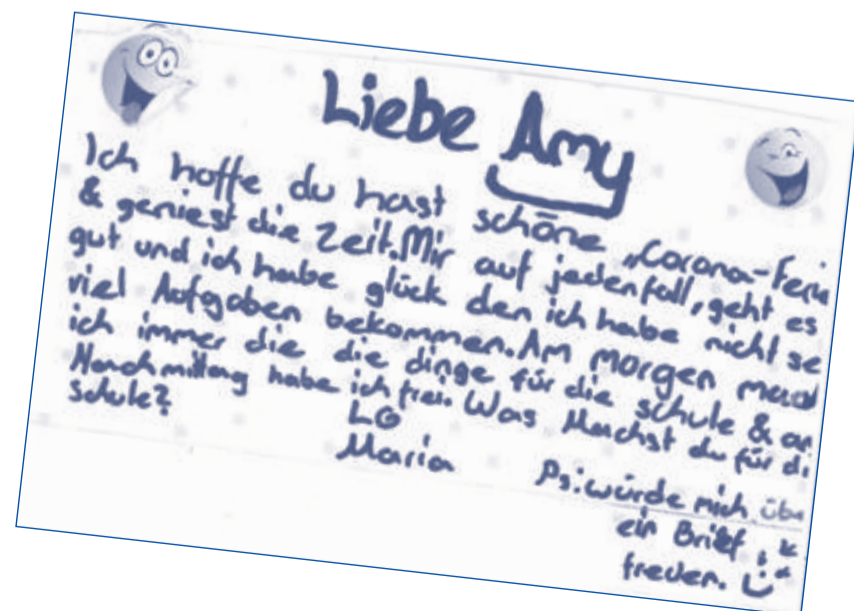 Liebe Amy
Ich hoffe du hast schöne „Corona-Ferie
& geniest die Zeit. Mir auf jedenfall, geht es
gut und ich habe glück den ich habe nicht se
viel Aufgaben bekommen. Am morgen mach
ich immer die die dinge für die schule & am
Nachmittag habe ich frei. Was Machst du für di
schule?
LG
Maria
Ps: würde mich übe
ein Brief
freuen.